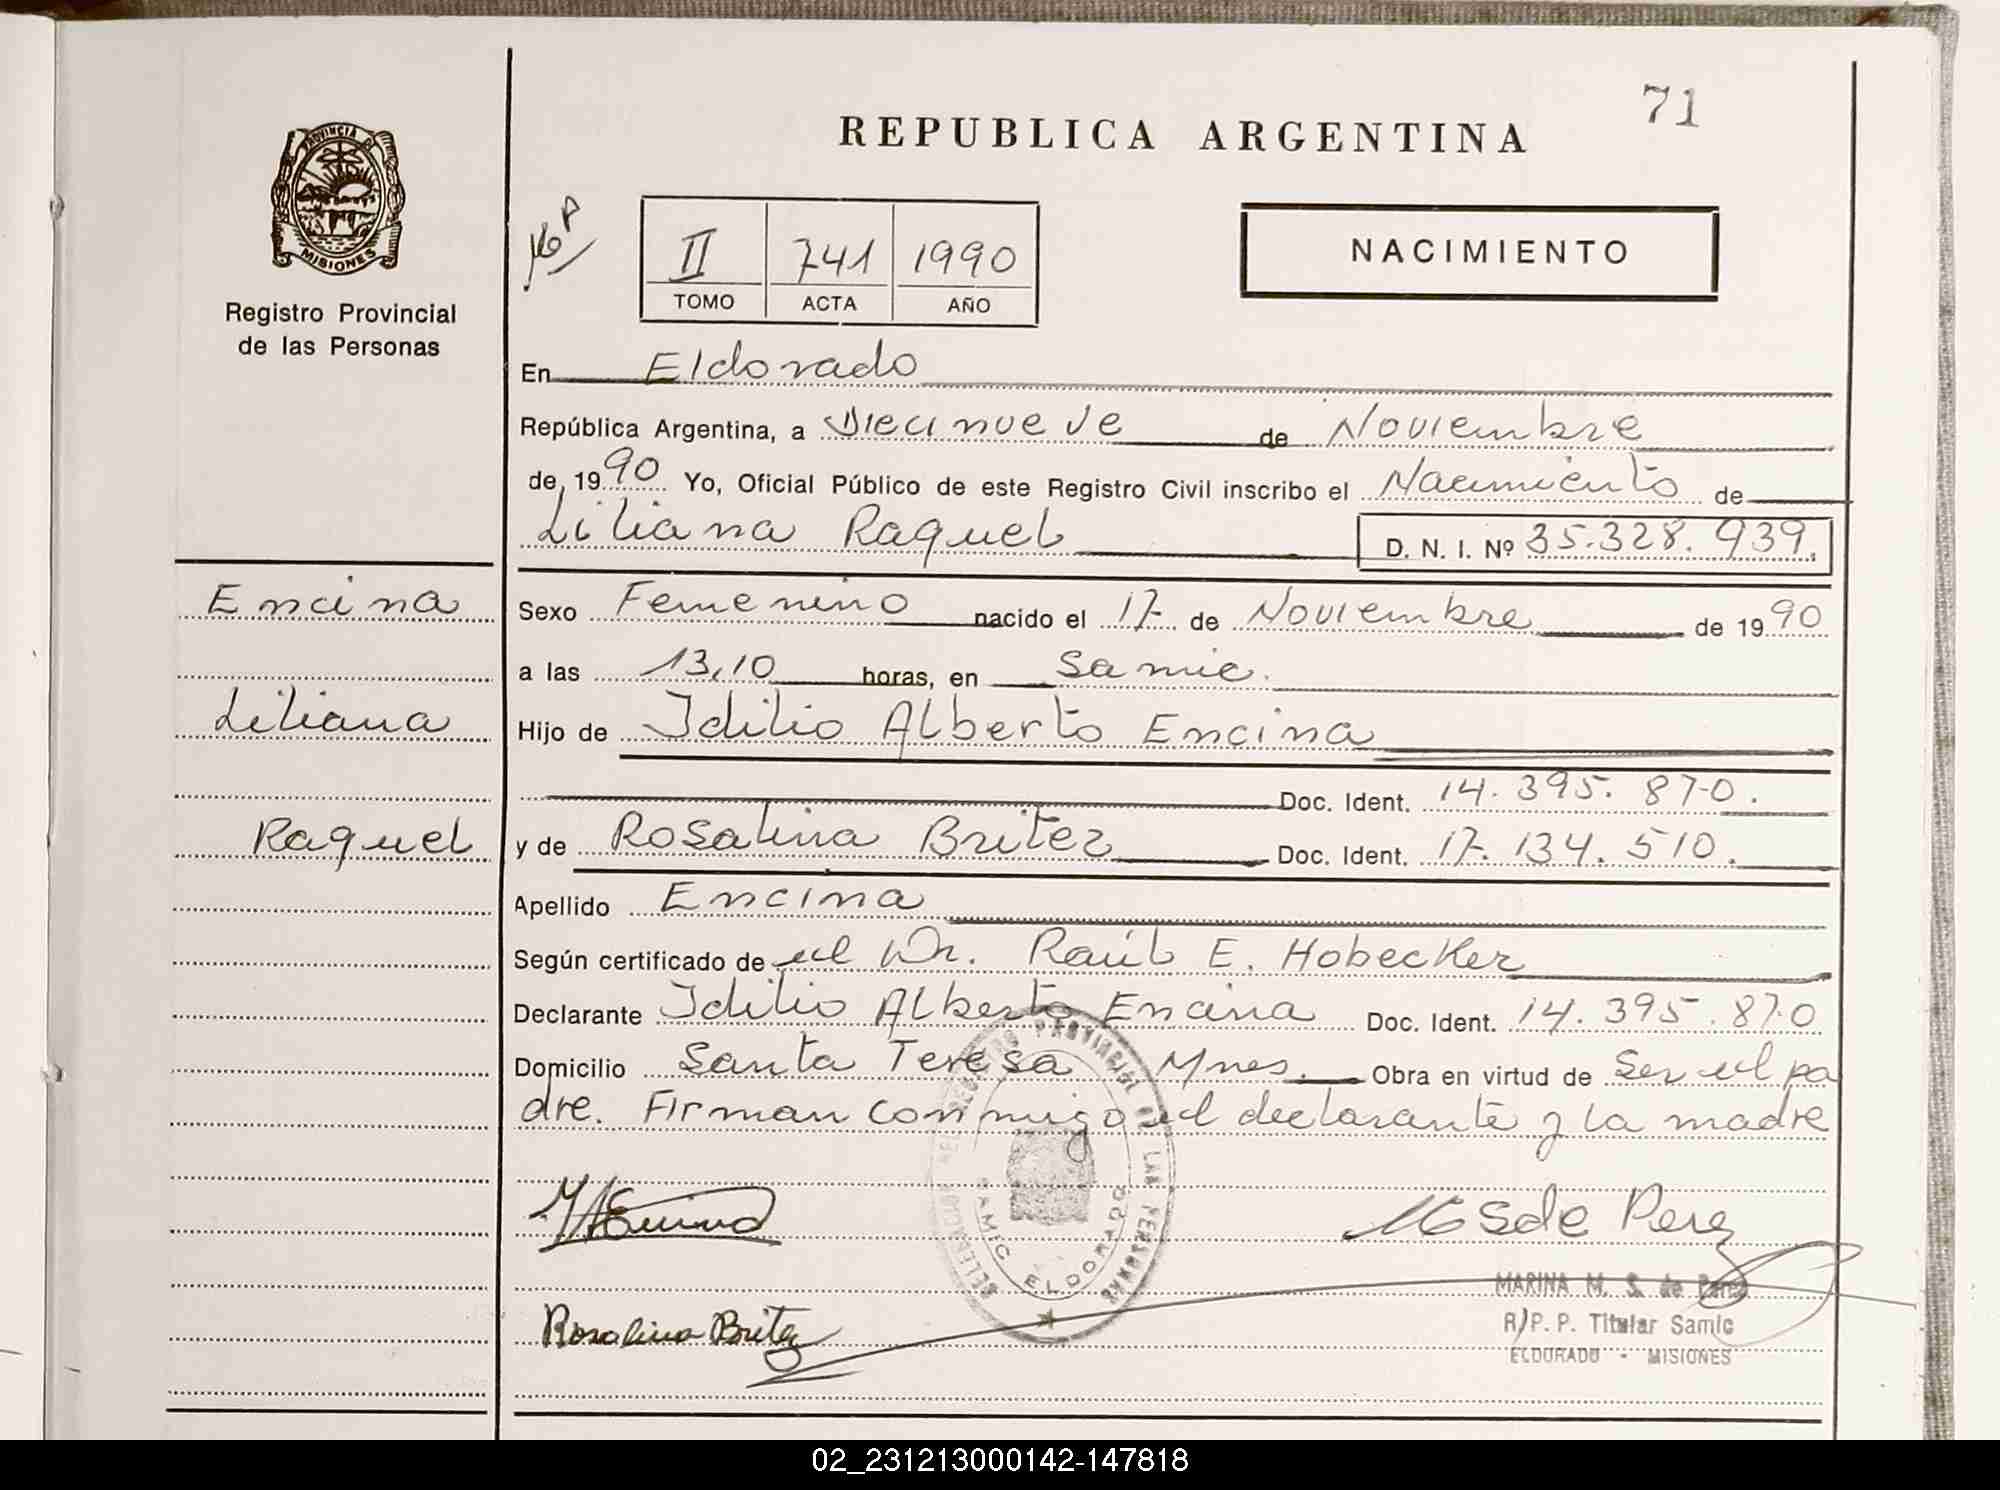 71
REPUBLICA ARGENTINA
PROVINCIA DE
MISIONES
Registro Provincial
de las Personas
II 741 1990
TOMO ACTA AÑO
NACIMIENTO
En Eldorado
República Argentina, a Diecinueve de Noviembre
de 1990 Yo, Oficial Público de este Registro Civil inscribo el Nacimiento de
Liliana Raquel D. N. I. Nº 35.328.939.
Encina
Sexo Femenino nacido el 17 de Noviembre de 1990
a las 13,10 horas, en Samic.
Liliana
Hijo de Idilio Alberto Encina
Doc. Ident. 14.395.870.
Raquel
y de Rosalina Britez Doc. Ident. 17.134.510.
Apellido Encina
Según certificado de el Dr. Raúl E. Hobecker
Declarante Idilio Alberto Encina Doc. Ident. 14.395.870
Domicilio Santa Teresa Mnes. Obra en virtud de Ser el pa
dre. Firman conmigo el declarante y la madre
REGISTRO PROVINCIAL DE LAS PERSONAS
SAMIC ELDORADO
MSde Perez
MARINA M. S. de Perez
R.P.P. Titular Samic
ELDORADO - MISIONES
Rosalina Britez
02_231213000142-147818